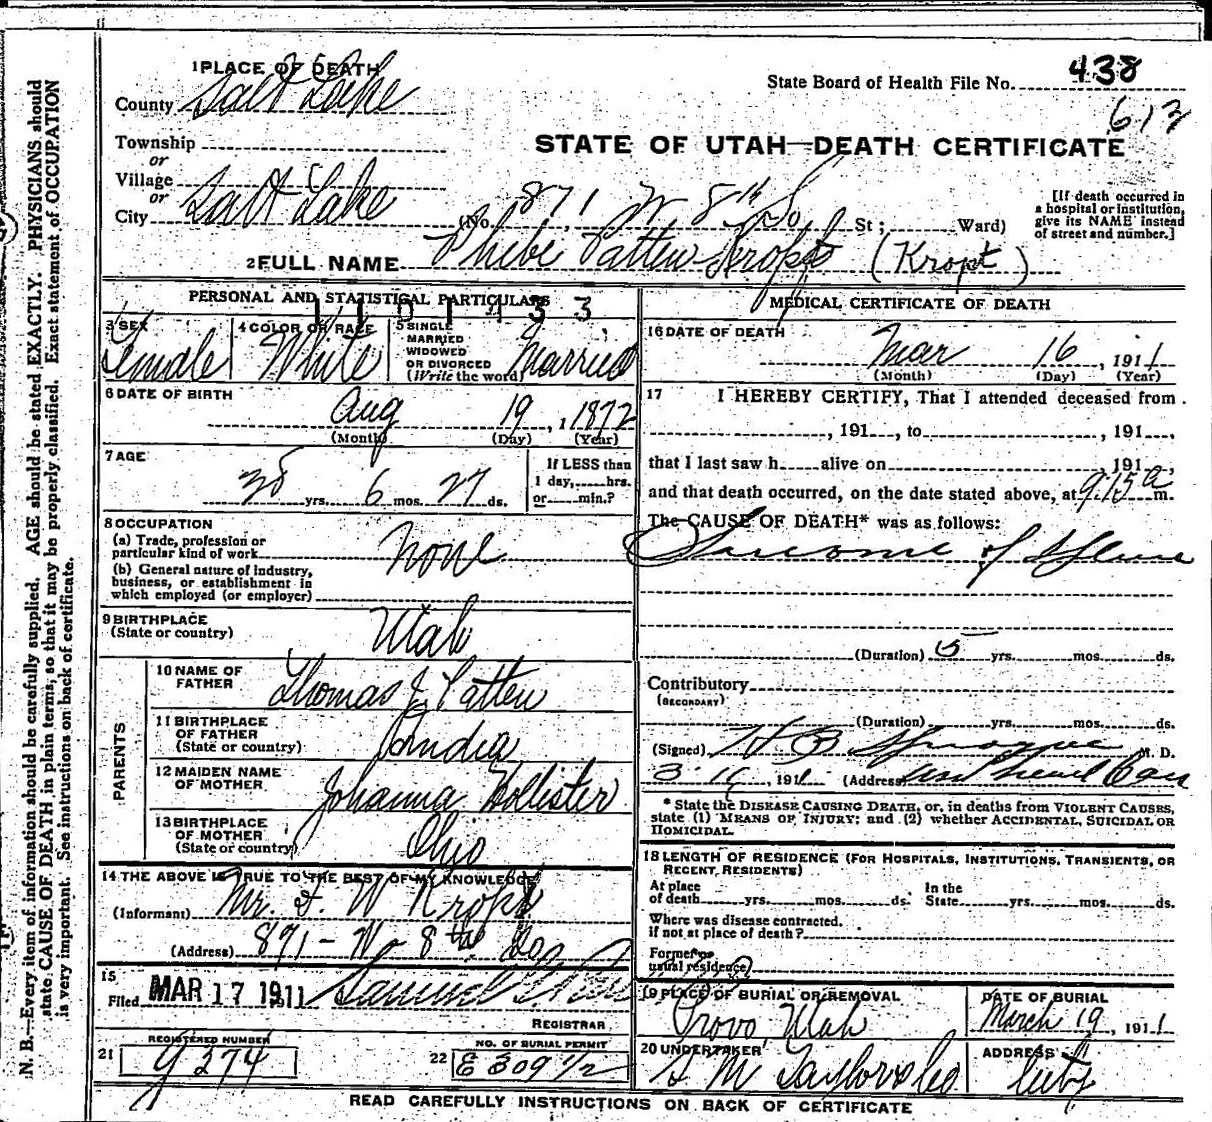 N. B.—Every item of information should be carefully supplied. AGE should be stated EXACTLY. PHYSICIANS should
state CAUSE OF DEATH in plain terms, so that it may be properly classified. Exact statement of OCCUPATION
is very important. See instructions on back of certificate.
1 PLACE OF DEATH
State Board of Health File No. 438
County Salt Lake
613
Township
or
STATE OF UTAH—DEATH CERTIFICATE
Village
or
City Salt Lake (No. 871 W 8th So St; Ward)
[If death occurred in
a hospital or institution,
give its NAME instead
of street and number.]
2 FULL NAME Phebe Patten Kropf (Kropt)
PERSONAL AND STATISTICAL PARTICULARS
1101433
3 SEX Female
4 COLOR OR RACE White
5 SINGLE
MARRIED
WIDOWED
OR DIVORCED
(Write the word) Married
6 DATE OF BIRTH
Aug 19, 1872
(Month) (Day) (Year)
7 AGE
38 yrs. 6 mos. 27 ds.
If LESS than
1 day, hrs.
or min.?
8 OCCUPATION
(a) Trade, profession or
particular kind of work None
(b) General nature of industry,
business, or establishment in
which employed (or employer)
9 BIRTHPLACE
(State or country) Utah
PARENTS
10 NAME OF
FATHER Thomas J Patten
11 BIRTHPLACE
OF FATHER
(State or country) India
12 MAIDEN NAME
OF MOTHER Johanna Hollister
13 BIRTHPLACE
OF MOTHER
(State or country) Ohio
14 THE ABOVE IS TRUE TO THE BEST OF MY KNOWLEDGE
(Informant) Mr. F. W Kropf
(Address) 871 - W 8th So
15
Filed MAR 17 1911 Samuel G.
REGISTRAR
REGISTERED NUMBER
21 G 374
NO. OF BURIAL PERMIT
22 E 309 1/2
MEDICAL CERTIFICATE OF DEATH
16 DATE OF DEATH
Mar 16, 1911
(Month) (Day) (Year)
17 I HEREBY CERTIFY, That I attended deceased from
, 191 , to , 191 ,
that I last saw h alive on 191 ,
and that death occurred, on the date stated above, at 9.15 a m.
The CAUSE OF DEATH* was as follows:
Sarcoma of
(Duration) 5 yrs. mos. ds.
Contributory
(SECONDARY)
(Duration) yrs. mos. ds.
(Signed) H B Sprague M. D.
3-16, 1911 (Address)
* State the DISEASE CAUSING DEATH, or, in deaths from VIOLENT CAUSES,
state (1) MEANS OF INJURY; and (2) whether ACCIDENTAL, SUICIDAL OR
HOMICIDAL.
18 LENGTH OF RESIDENCE (FOR HOSPITALS, INSTITUTIONS, TRANSIENTS, OR
RECENT RESIDENTS)
At place
of death yrs. mos. ds.
In the
State yrs. mos. ds.
Where was disease contracted.
if not at place of death?
Former or
usual residence
19 PLACE OF BURIAL OR REMOVAL
Provo, Utah
DATE OF BURIAL
March 19, 1911
20 UNDERTAKER
S M Taylor & Co
ADDRESS
City
READ CAREFULLY INSTRUCTIONS ON BACK OF CERTIFICATE